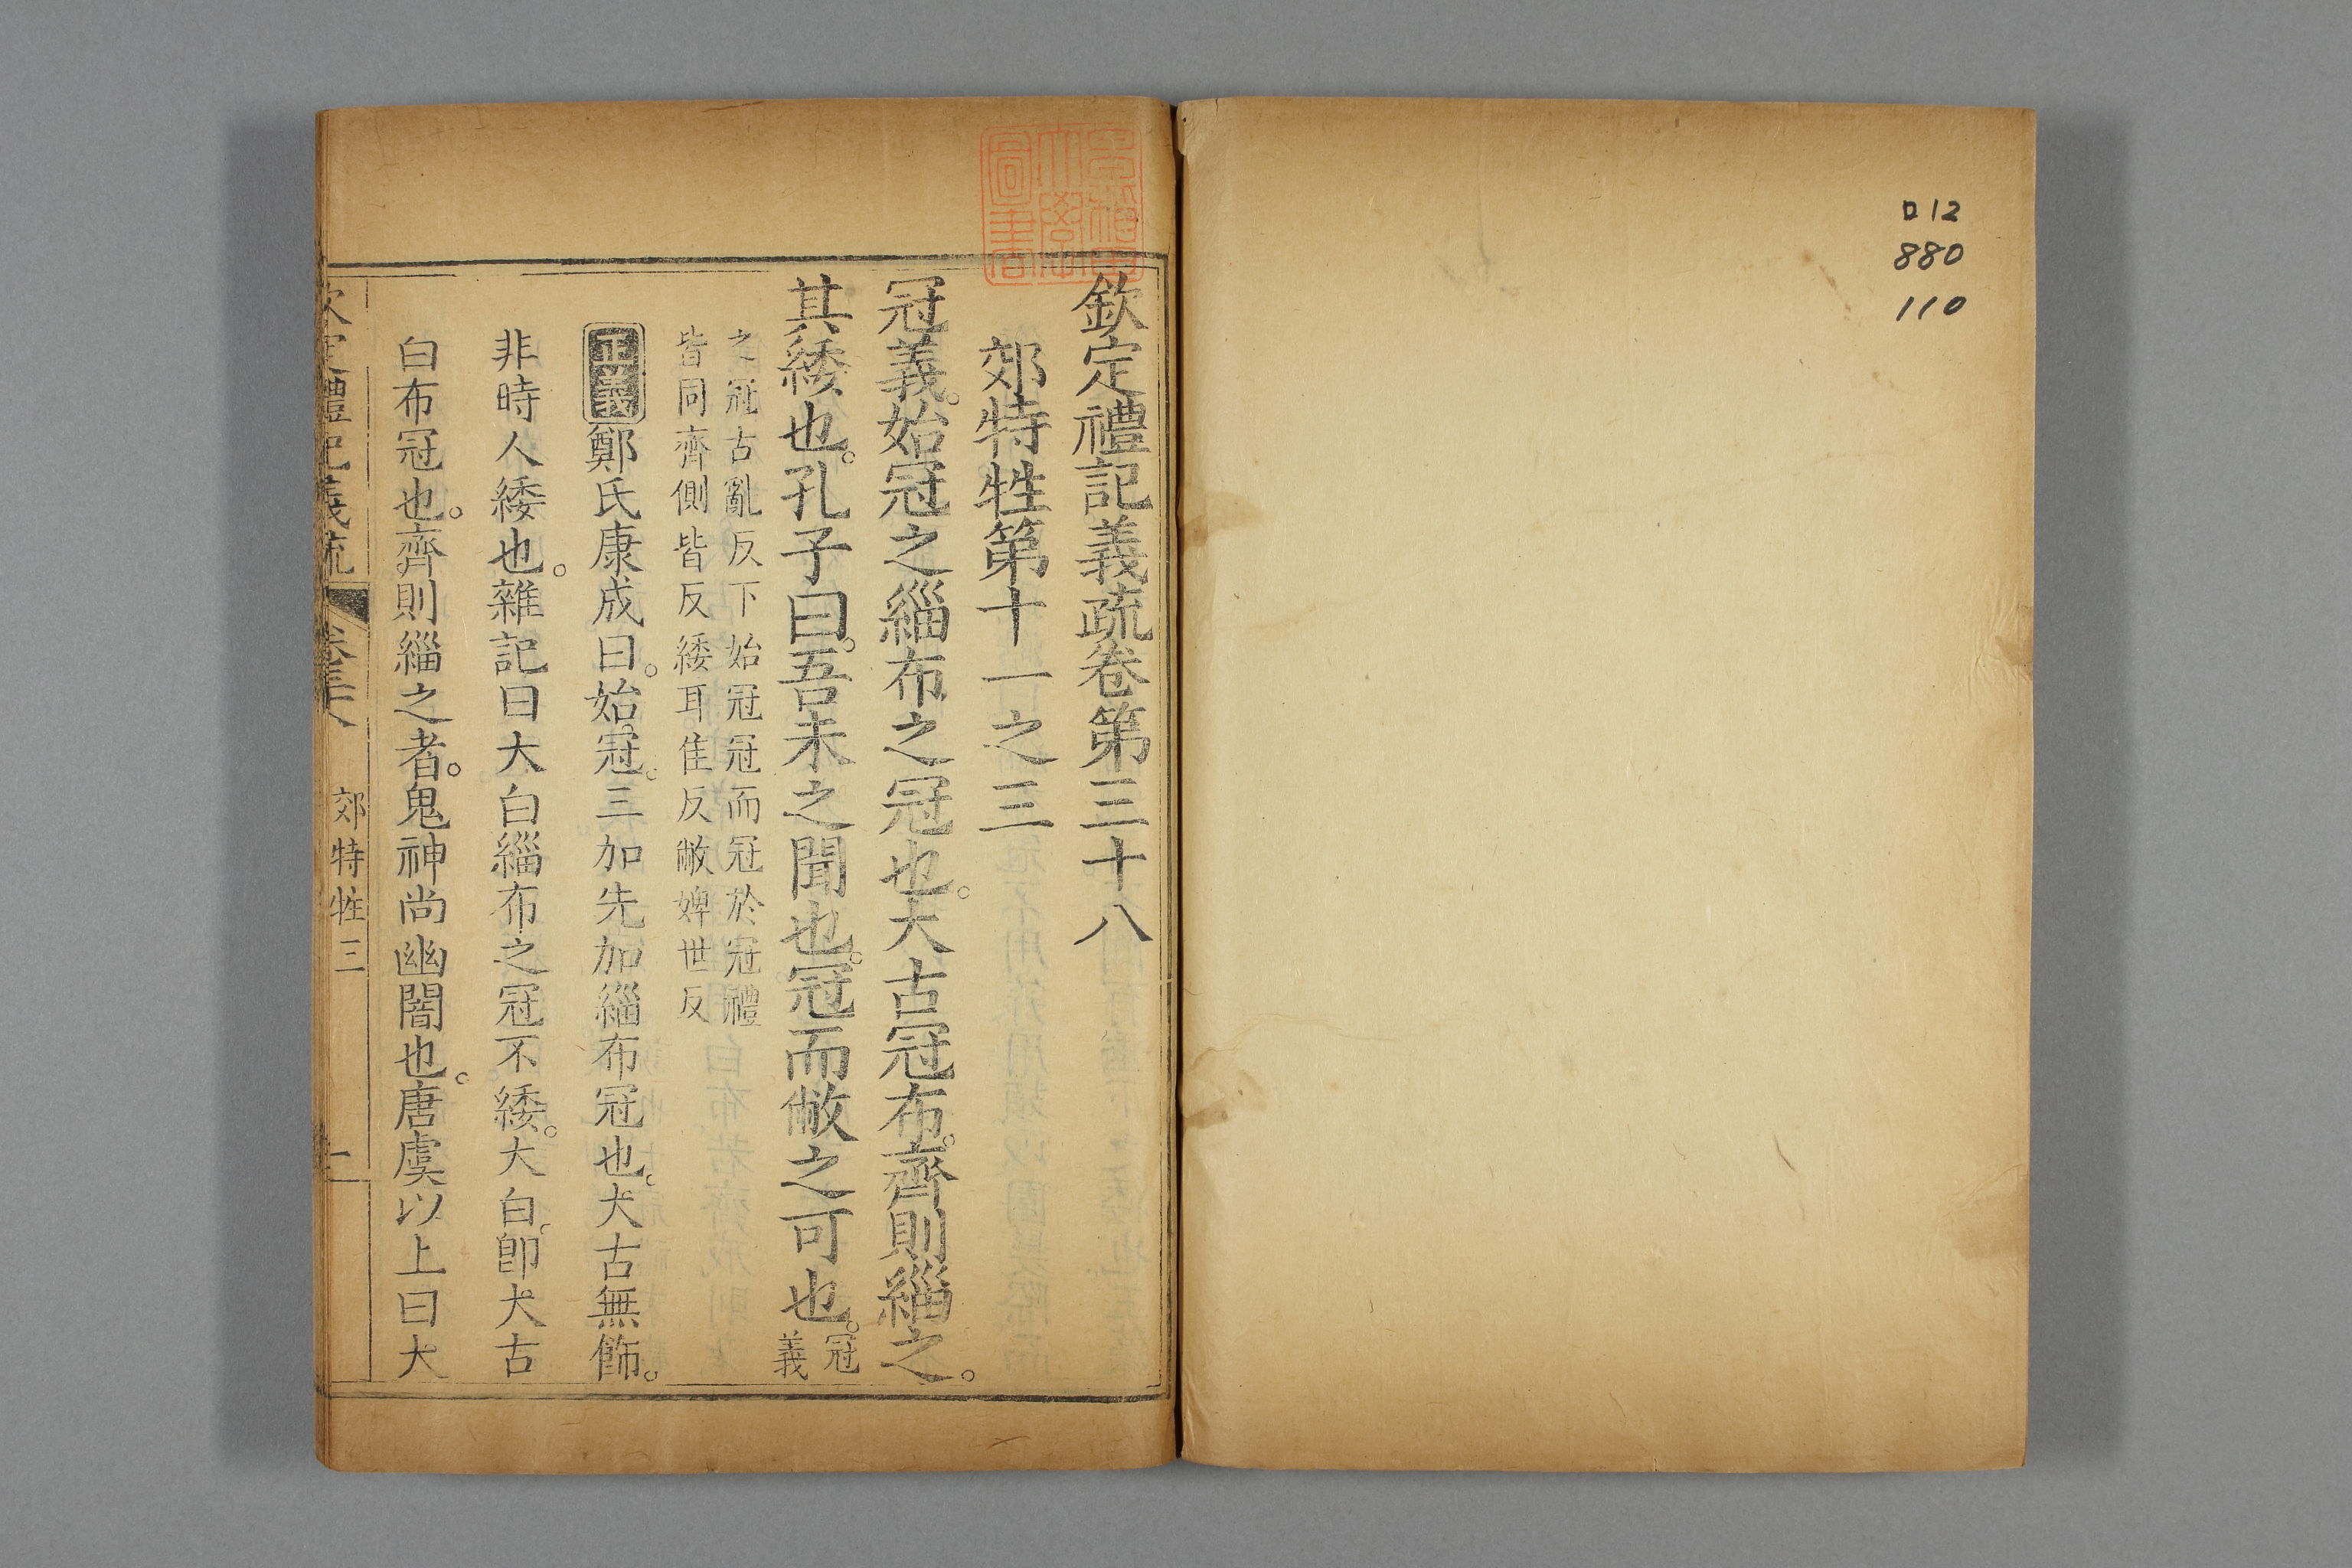 ロ12
880
110
早稲田大學圖書
欽定禮記義疏卷第三十八
郊特牲第十一之三
冠義。始冠之緇布之冠也。大古冠布。齊則緇之。
其緌也。孔子曰。吾未之聞也。冠而敝之可也。冠義
之冠古亂反下始冠冠而冠於冠禮
皆同齊側皆反緌耳隹反敝婢世反
正義鄭氏康成曰。始冠。三加先加緇布冠也。大古無飾。
非時人緌也。雜記曰大白緇布之冠不緌。大白。卽大古
白布冠也。齊則緇之者。鬼神尚幽闇也。唐虞以上曰大
欽定禮記義疏 卷三十八 郊特牲三 一